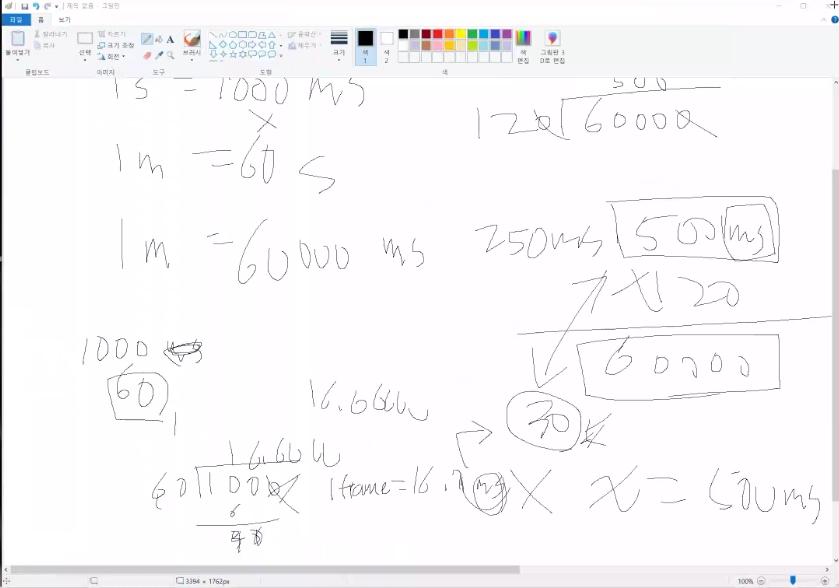 제목 없음 - 그림판
파일 홈 보기
붙여넣기
잘라내기
복사
클립보드
선택
자르기
크기 조정
회전
이미지
A
도구
브러시
윤곽선
채우기
도형
크기
색
1
색
2
색
편집
그림판 3
D로 편집
색
1s = 1000 ms
x
1m = 60 s
1m = 60000 ms
500
120 60000
250ms 500 ms
x 120
60000
1000
60
16.666
30
16.66
60 1000
1 frame = 16.7 ms x x = 500ms
6
40
3394 × 1762px
100%